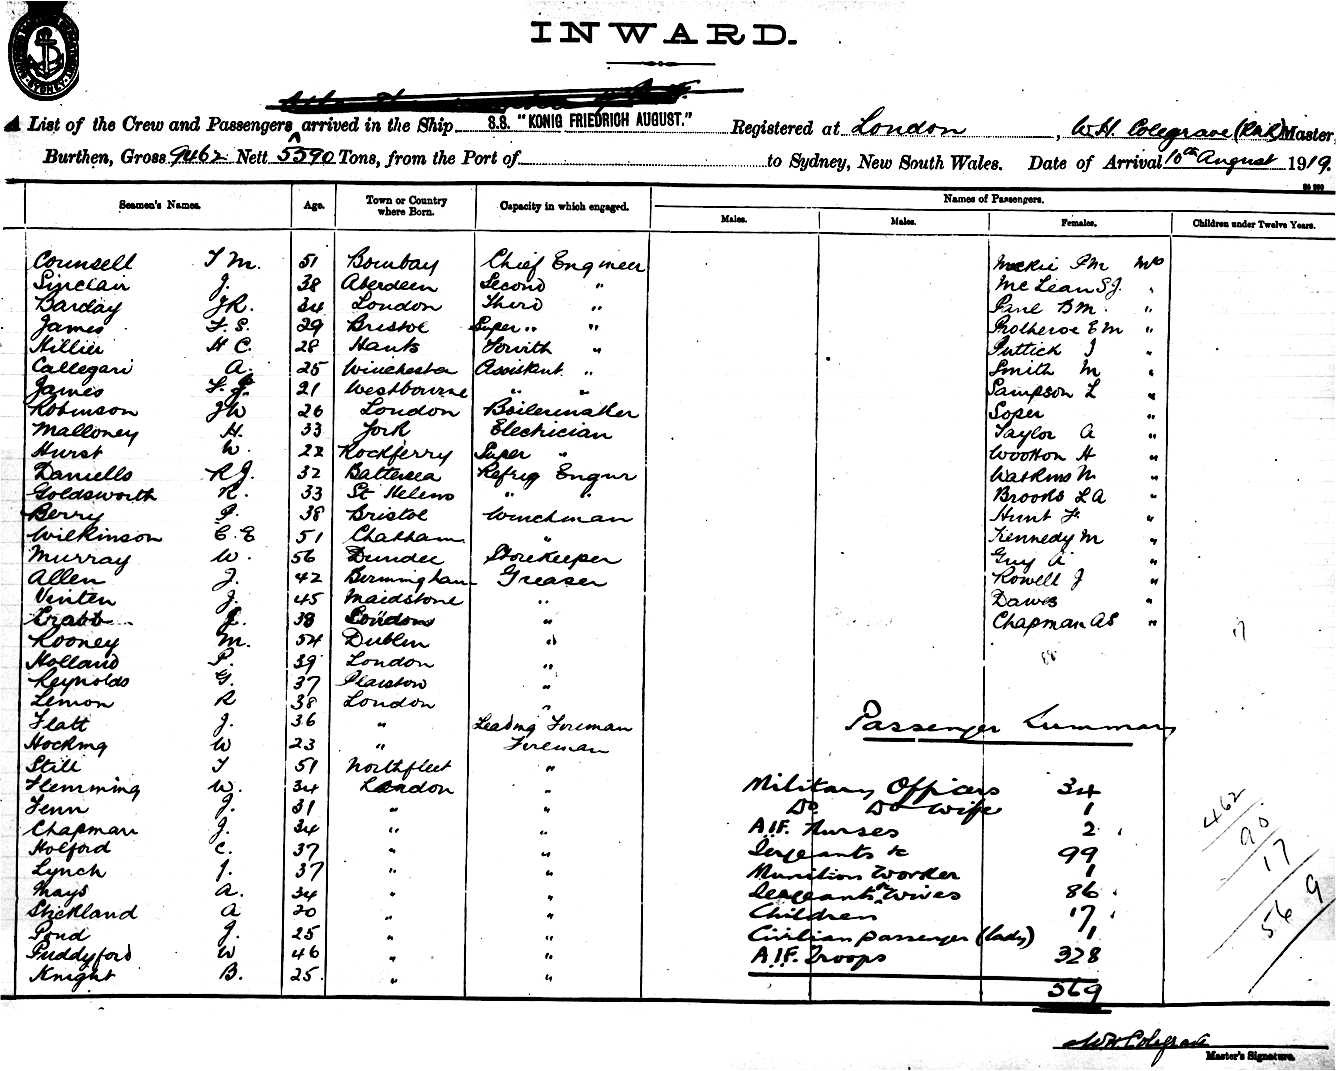 INWARD.
List of the Crew and Passengers arrived in the Ship S.S. "KONIG FRIEDRICH AUGUST." Registered at London, W.H. Colegrave (RNR) Master,
Burthen, Gross 9462 Nett 5390 Tons, from the Port of to Sydney, New South Wales. Date of Arrival 10th August 1919.
Seamen's Names. Age. Town or Country where Born. Capacity in which engaged. Names of Passengers.
Males. Males. Females. Children under Twelve Years.
Counsell T M. 51 Bombay Chief Engineer Mackie P M Mrs
Sinclair J. 38 Aberdeen Second " McLean S J. "
Barclay J R. 34 London Third " B M. "
James F. S. 29 Bristol Super " " Protheroe E M "
Hillier H C. 28 Hants Fourth " Puttick J "
Callegari A. 25 Winchester Assistant " Smith M "
James 21 Westbourne " " Sampson L "
Robinson J W 26 London Boilermaker Soper "
Malloney H. 33 York Electrician Taylor A "
Hurst W. 22 Rockferry Super " Wootton H "
Daniells R J. 32 Battersea Refrig Engnr Watkins M "
Goldsworth R. 33 St Helens " " Brooks L A "
Berry P. 38 Bristol Winchman Hunt F. "
Wilkinson C. E 51 Chatham " Kennedy M "
Murray W. 56 Dundee Storekeeper Guy A "
Allen J. 42 Bermingham Greaser Rowell J "
Vinten J. 45 Maidstone " Dawes "
Crabb J. 38 London " Chapman A E "
17
Rooney M. 54 Dublin "
Holland P. 39 London "
Reynolds G. 37 Plaistow "
Lemon R 38 London "
Flatt J. 36 " Leading Fireman Passenger Summary
Hocking W 23 " Fireman
Still T 51 Northfleet "
Flemming W. 34 London " Military Officers 34
Fenn J. 31 " " Do Do Wife 1
Chapman J. 34 " " A.I.F. Nurses 2
Holford C. 37 " " Sergeants &c 99
Lynch J. 37 " " Munition Worker 1
Mays A. 34 " " Sergeants Wives 86
Stickland A 20 " " Children 17
Pond J. 25 " " Civilian passenger (lady) 1
Puddyford W 46 " " A.I.F. Troops 328
Knight B. 25. " "
569
462
90
17
569
W H Colegrave
Master's Signature.